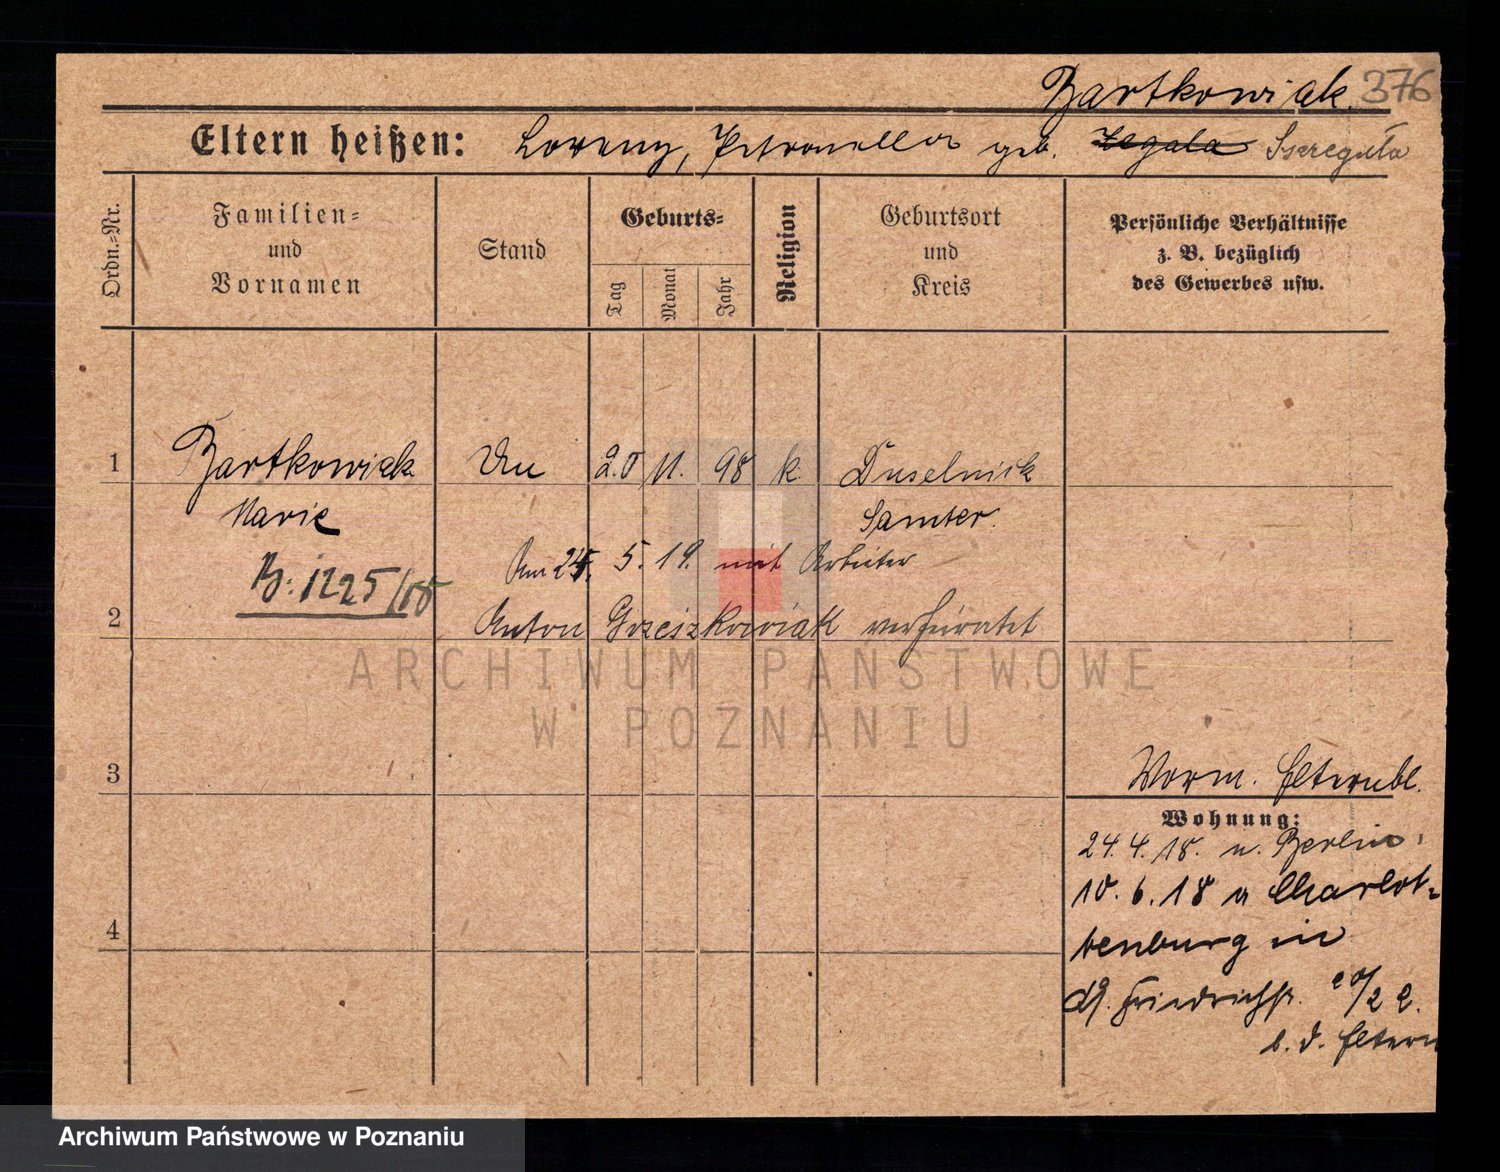 Bartkowiak. 376
Eltern heißen: Lorenz, Petronella geb. Zegala Szregula
Ordn.=Nr.
Familien=
und
Vornamen
Stand
Geburts=
Tag
Monat
Jahr
Religion
Geburtsort
und
Kreis
Persönliche Verhältnisse
z. B. bezüglich
des Gewerbes usw.
1 Bartkowiak 20 11. 98 k. Duselnick
Marie Samter.
Am 24. 5. 19. mit Arbeiter
B: 1225/18
2 Anton Grzeszkowiak verheiratet
ARCHIWUM PAŃSTWOWE
W POZNANIU
3
Vorm. Elternbl.
Wohnung:
24. 4. 18. n. Berlin.
10. 6. 18 n Charlot=
tenburg in
Friedrichstr. 20/2
b. d. Eltern
4
Archiwum Państwowe w Poznaniu